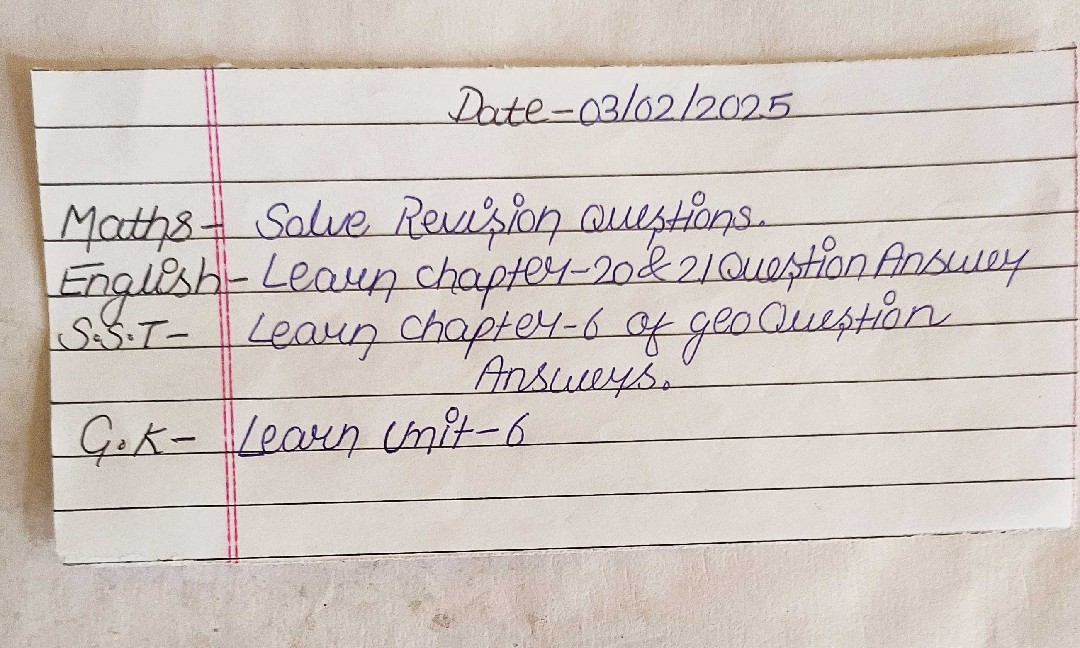 Date-03/02/2025
Maths- Solve Revision Questions.
English- Learn chapter-20 & 21 Question Answer
S.S.T- Learn chapter-6 of geo Question
Answers.
G.K- Learn Unit-6